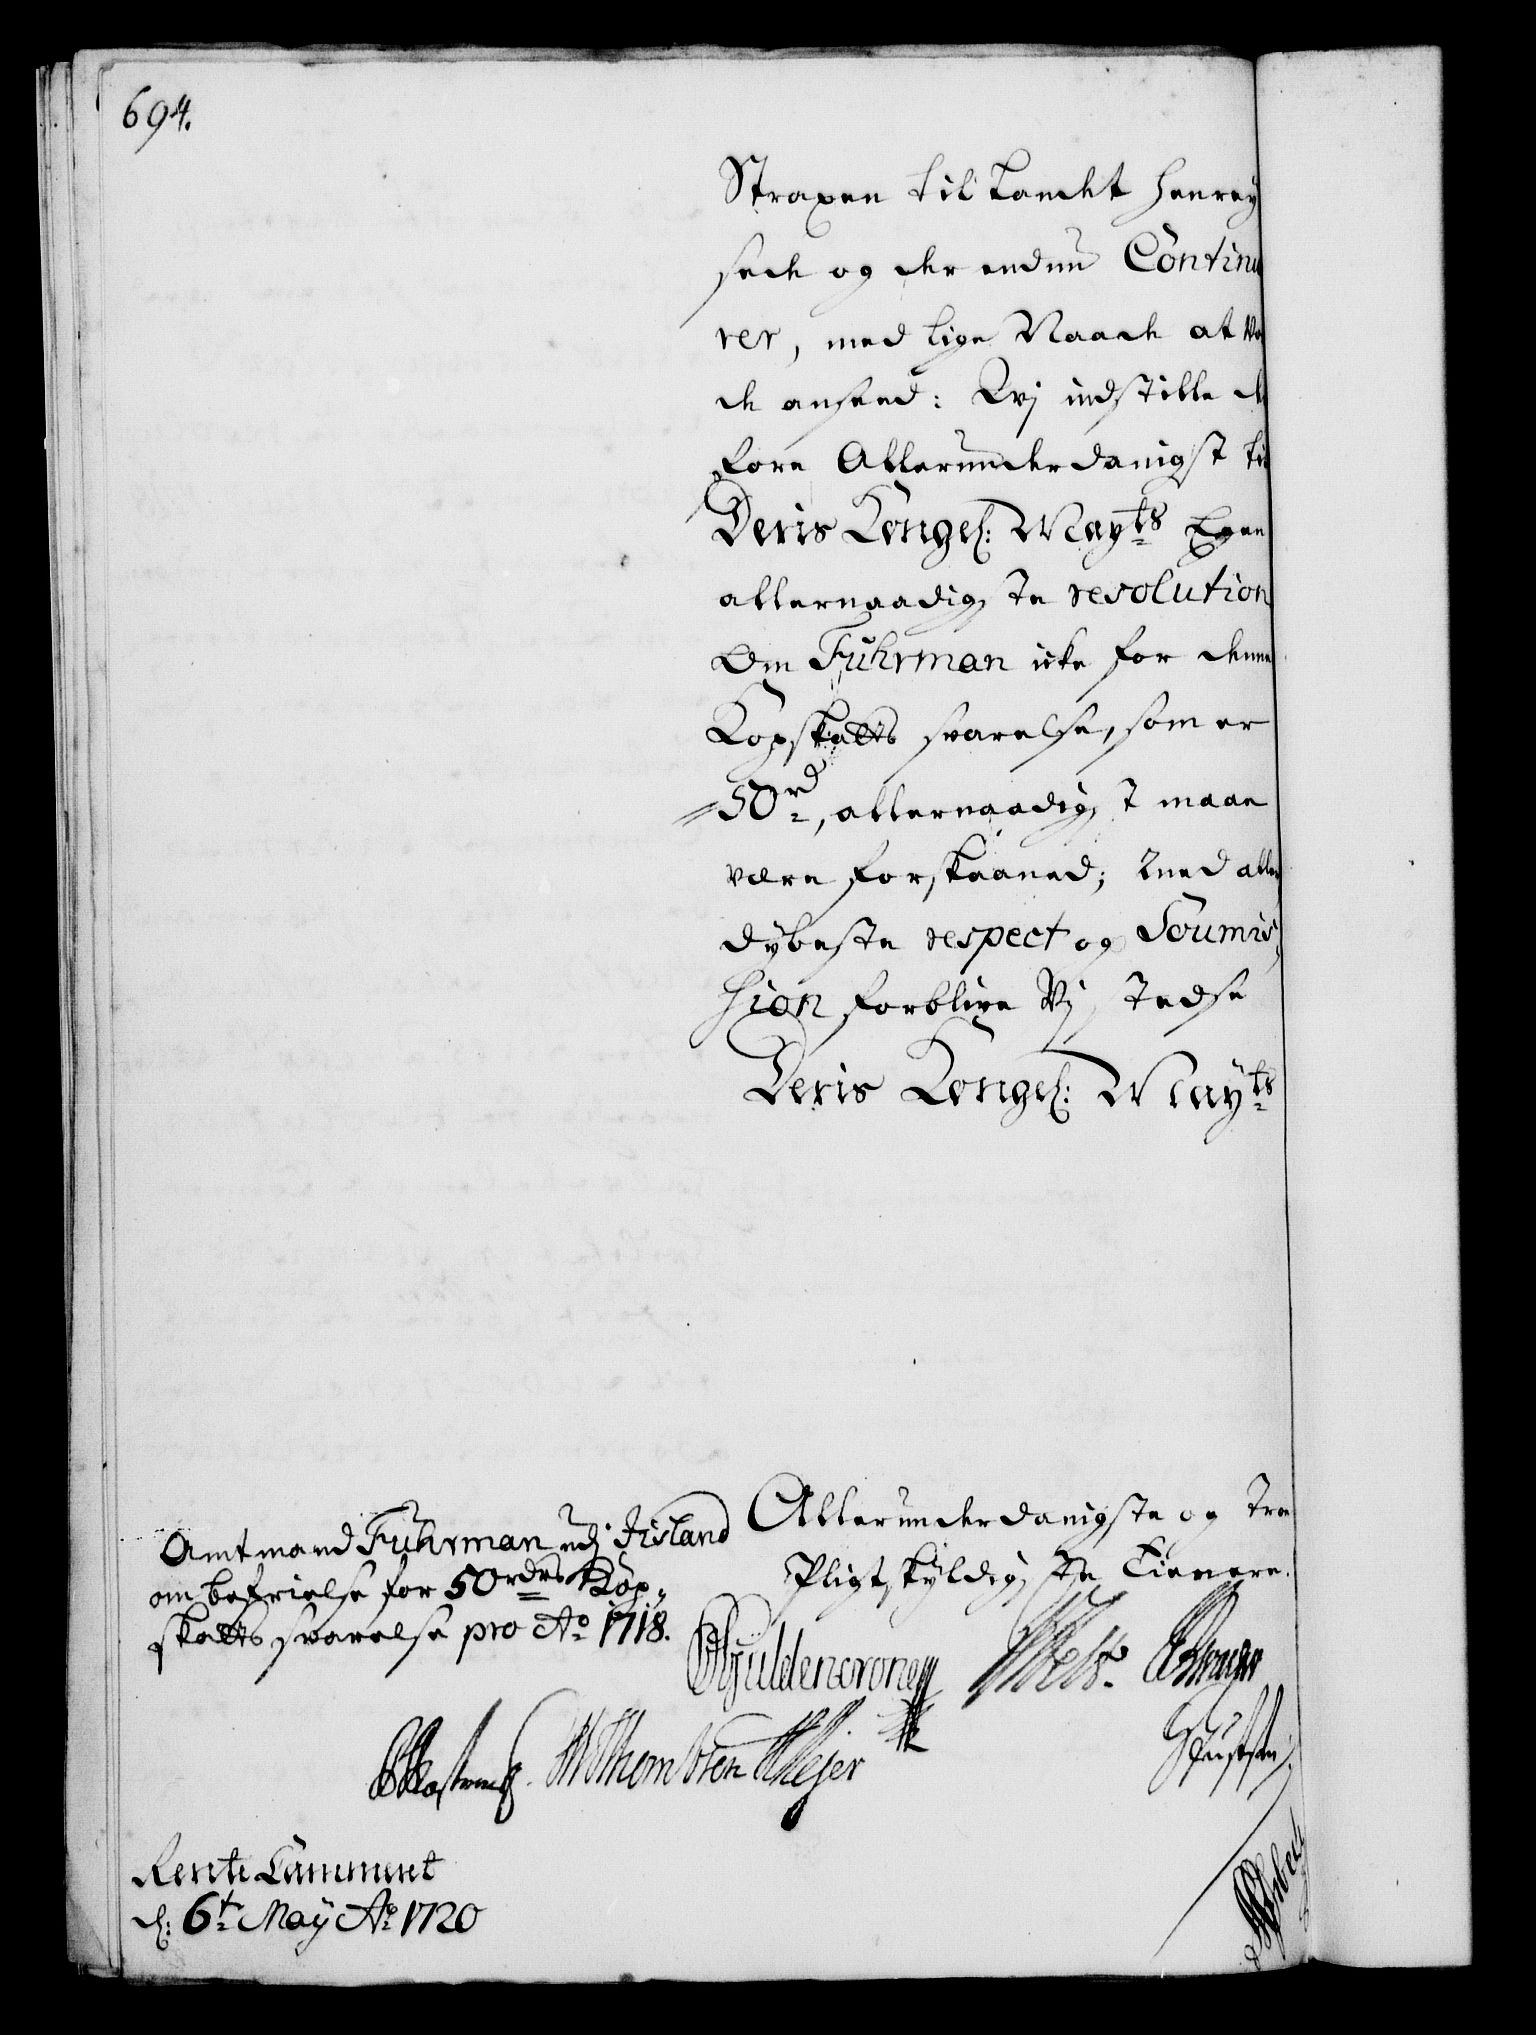 694.
Straxen til Landet henrey
sede og der endnu Continu
rer, med lige Naade at vor
de anseed: Wj indstille de
fore Allerunderdanigst til
Deris Kongel: Mayts Egen
allernaadigste resolution
Om Fuhrman icke for denne
Kopskatts svarelse, som er
50 rd, allernaadigst maae
være forskaaned; Med aller
dybeste respect og Soumis
sion forblive Vj stedse
Deris Kongel: Mayts
Allerunderdanigste og Troe
Pligtskyldigste Tienere.
Amtmand Fuhrman udj Jisland
om befrielse for 50 rdrs Kop-
skatts svarelse pro Ao 1718.
Guldencrone
WThomssen Meyer
Rente Cammeret
d: 6t May Ao 1720